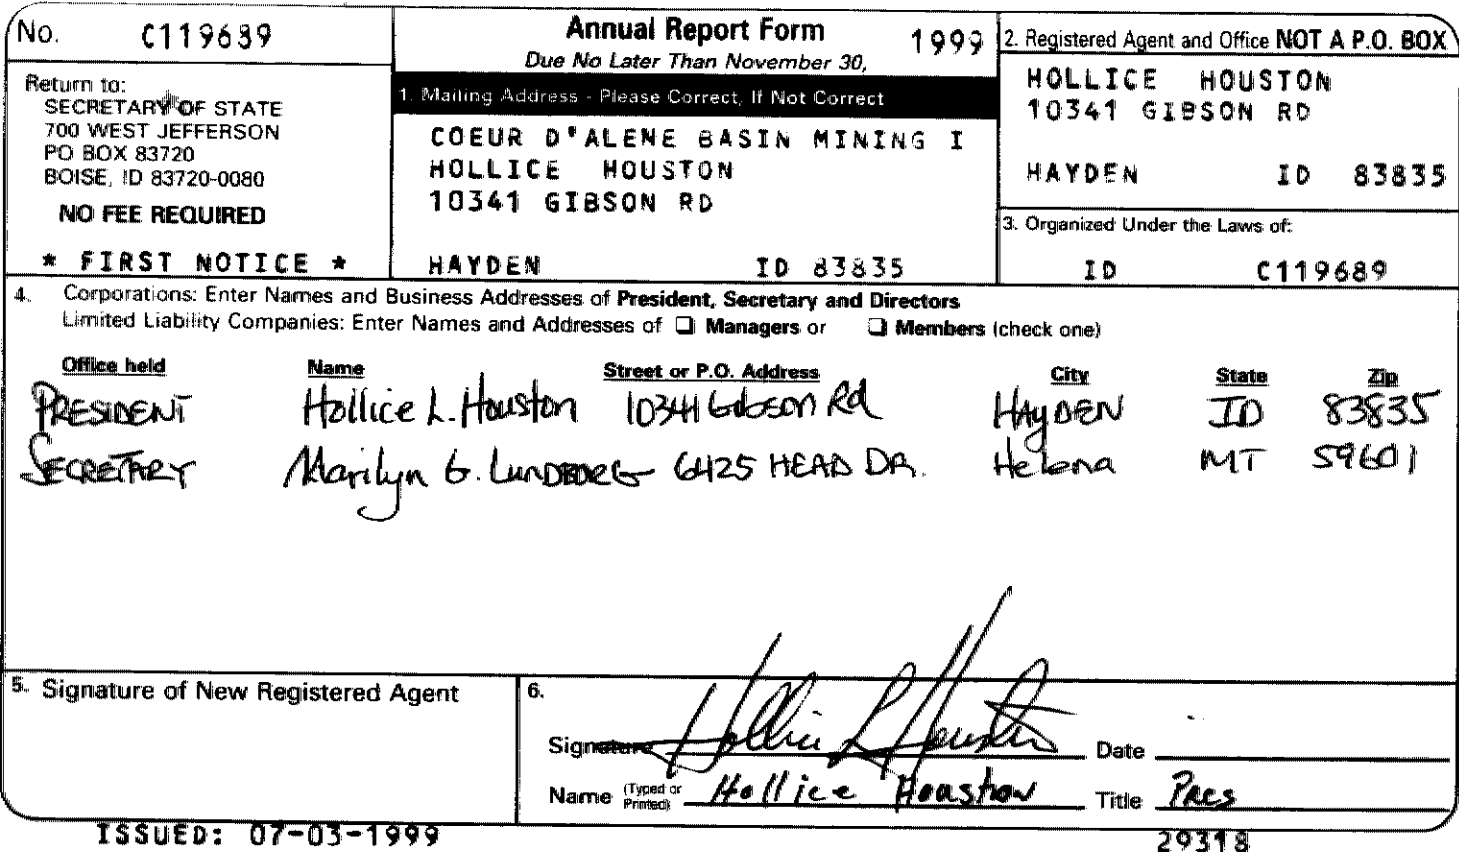 No. C119689
Return to:
SECRETARY OF STATE
700 WEST JEFFERSON
PO BOX 83720
BOISE, ID 83720-0080
NO FEE REQUIRED
* FIRST NOTICE *
Annual Report Form 1999
Due No Later Than November 30,
1. Mailing Address - Please Correct, If Not Correct
COEUR D'ALENE BASIN MINING I
HOLLICE HOUSTON
10341 GIBSON RD
HAYDEN ID 83835
2. Registered Agent and Office NOT A P.O. BOX
HOLLICE HOUSTON
10341 GIBSON RD
HAYDEN ID 83835
3. Organized Under the Laws of:
ID C119689
4. Corporations: Enter Names and Business Addresses of President, Secretary and Directors
Limited Liability Companies: Enter Names and Addresses of ❑ Managers or ❑ Members (check one)
Office held Name Street or P.O. Address City State Zip
PRESIDENT Hollice L. Houston 10341 Gibson Rd HAYDEN ID 83835
SECRETARY Marilyn G. 6425 HEAD DR. Helena MT 59601
5. Signature of New Registered Agent
6.
Signature Hollice L Houston Date
Name (Typed or Printed) Hollice Houston Title Pres
ISSUED: 07-03-1999
29318